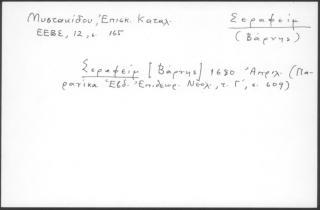 Μυστακίδου, Ἐπισκ. Καταλ.
ΕΕΒΣ, 12, σ. 165
Σεραφείμ
(Βάρνης)
Σεραφείμ [Βάρνης] 1680 Ἀπριλ. (Πα-
ρανίκα Ἑβδ. Ἐπιθεωρ. Νεολ., τ. Γ΄, σ. 609)